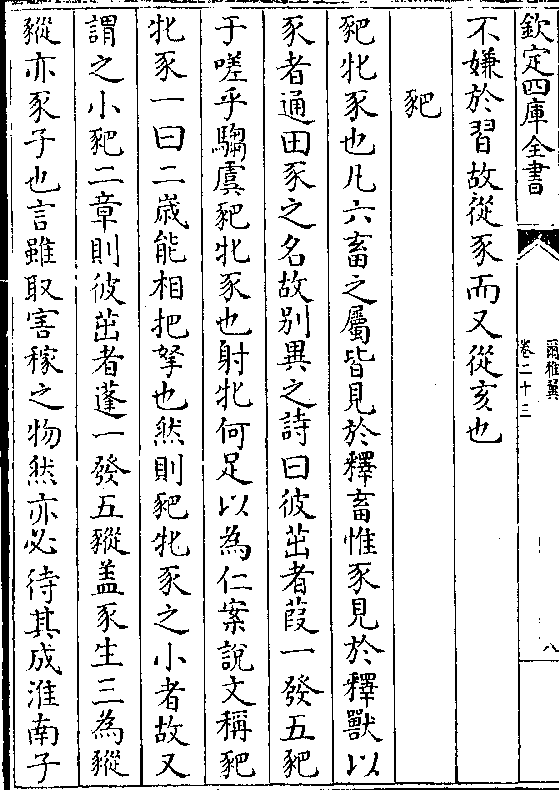 欽定四庫全書
爾雅翼
卷二十三
八
不嫌於習故從豕而又從亥也
豝
豝牝豕也凡六畜之屬皆見於釋畜惟豕見於釋獸以
豕者通田豕之名故别異之詩曰彼茁者葭一發五豝
于嗟乎騶虞豝牝豕也射牝何足以為仁案說文稱豝
牝豕一曰二歳能相把拏也然則豝牝豕之小者故又
謂之小豝二章則彼茁者蓬一發五豵盖豕生三為豵
豵亦豕子也言雖取害稼之物然亦必待其成淮南子